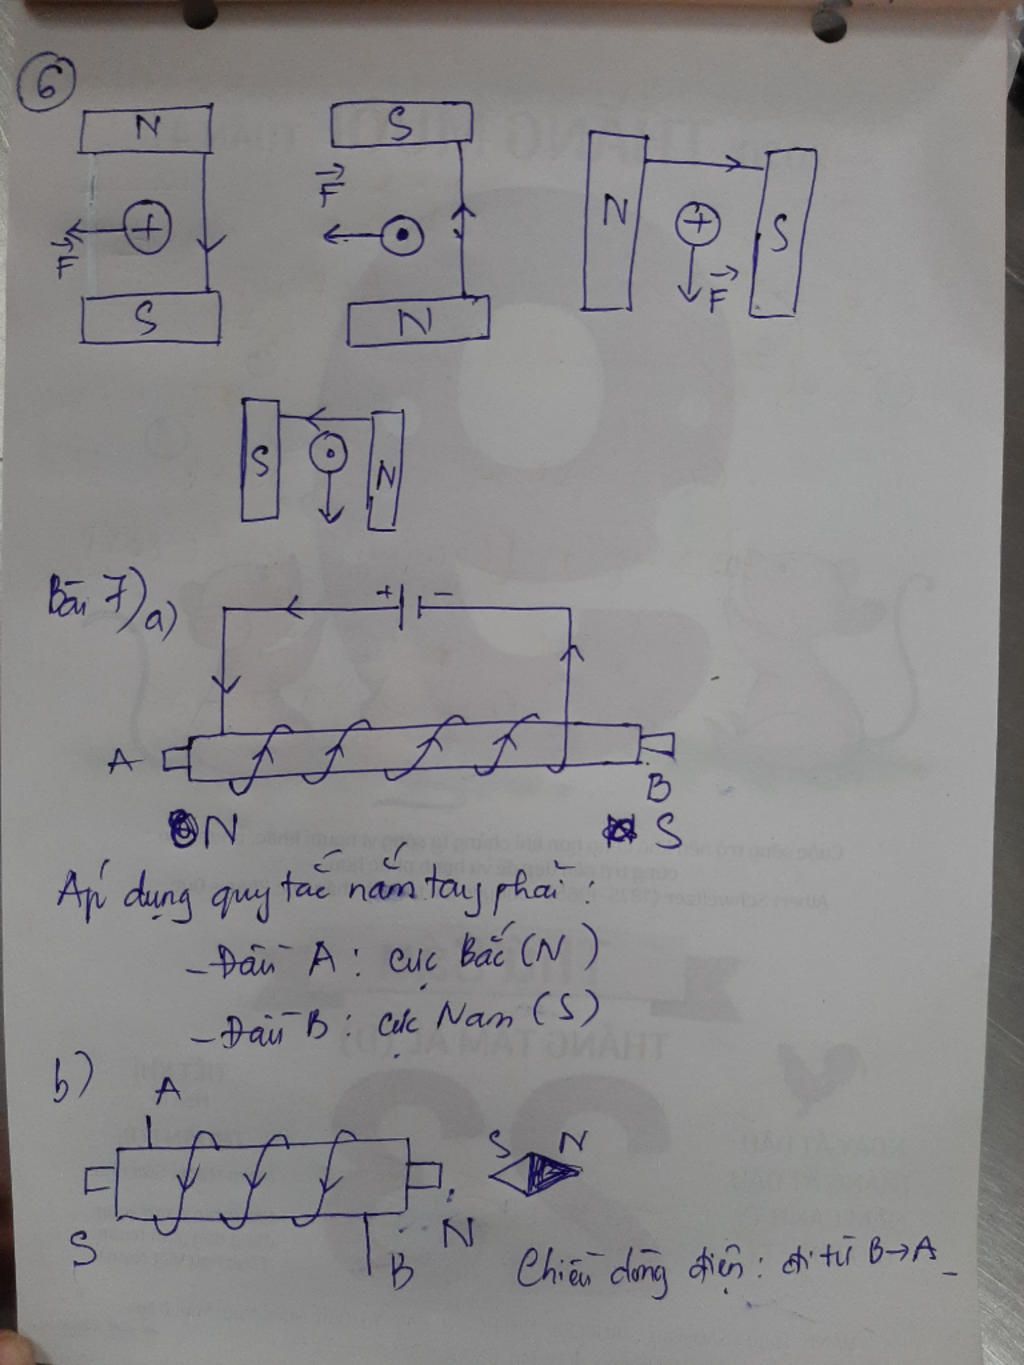 6
N
S
+
F
S
F
N
N
+
S
F
S
N
Bài 7) a)
+ -
A
B
N
S
Áp dụng quy tắc nắm tay phải :
- Đầu A : cực Bắc (N)
- Đầu B : cực Nam (S)
b)
A
S N
S
B
N
Chiều dòng điện : đi từ B→A